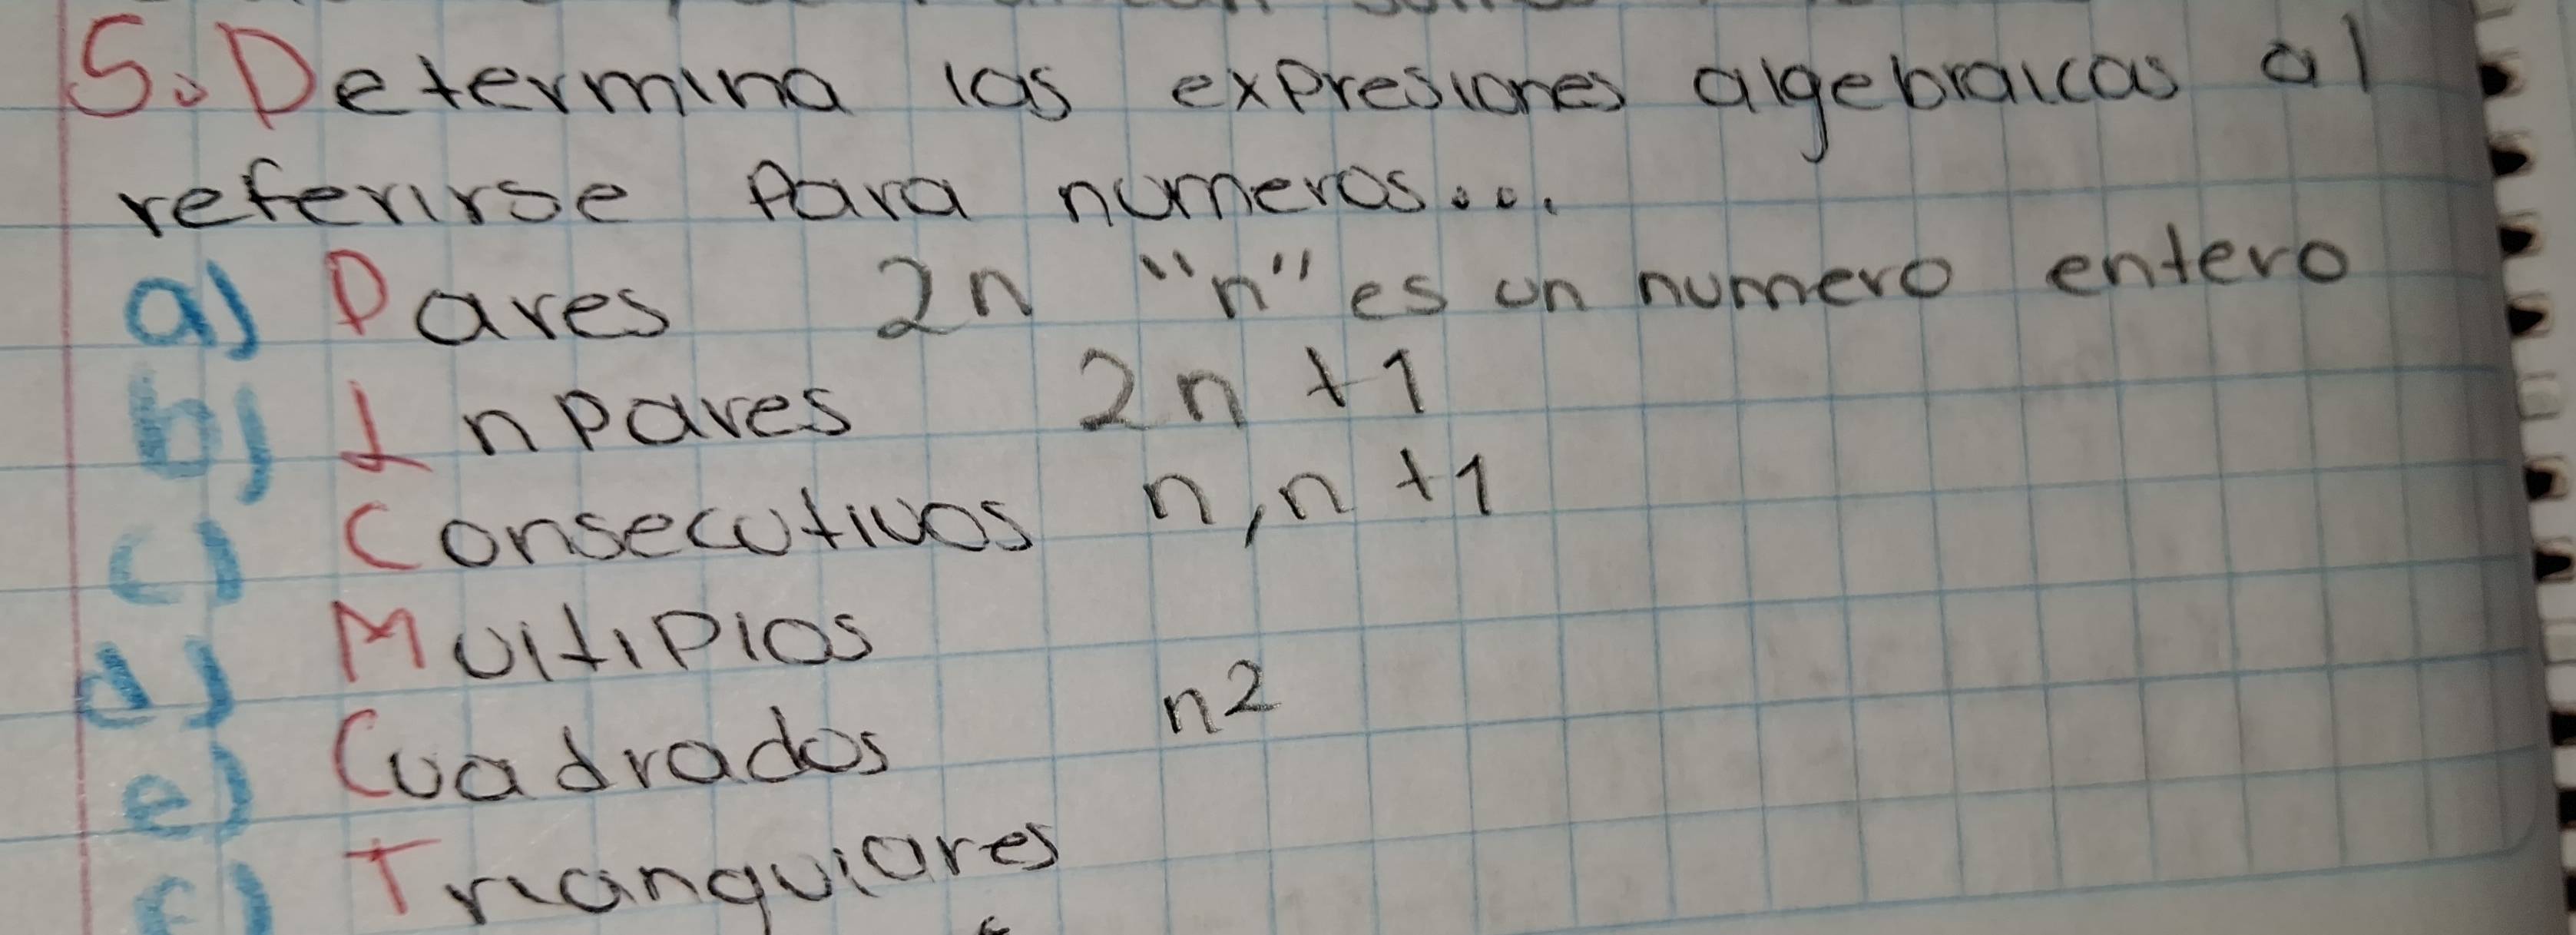 5. Determina las expresiones algebraicas al
referirse para numeros...
a) Pares 2n "n" es un numero entero
b) Inpares 2n +1
c) Consecutivos n, n +1
d) Multiplos
e) Cuadrados n²
f) Triangulares